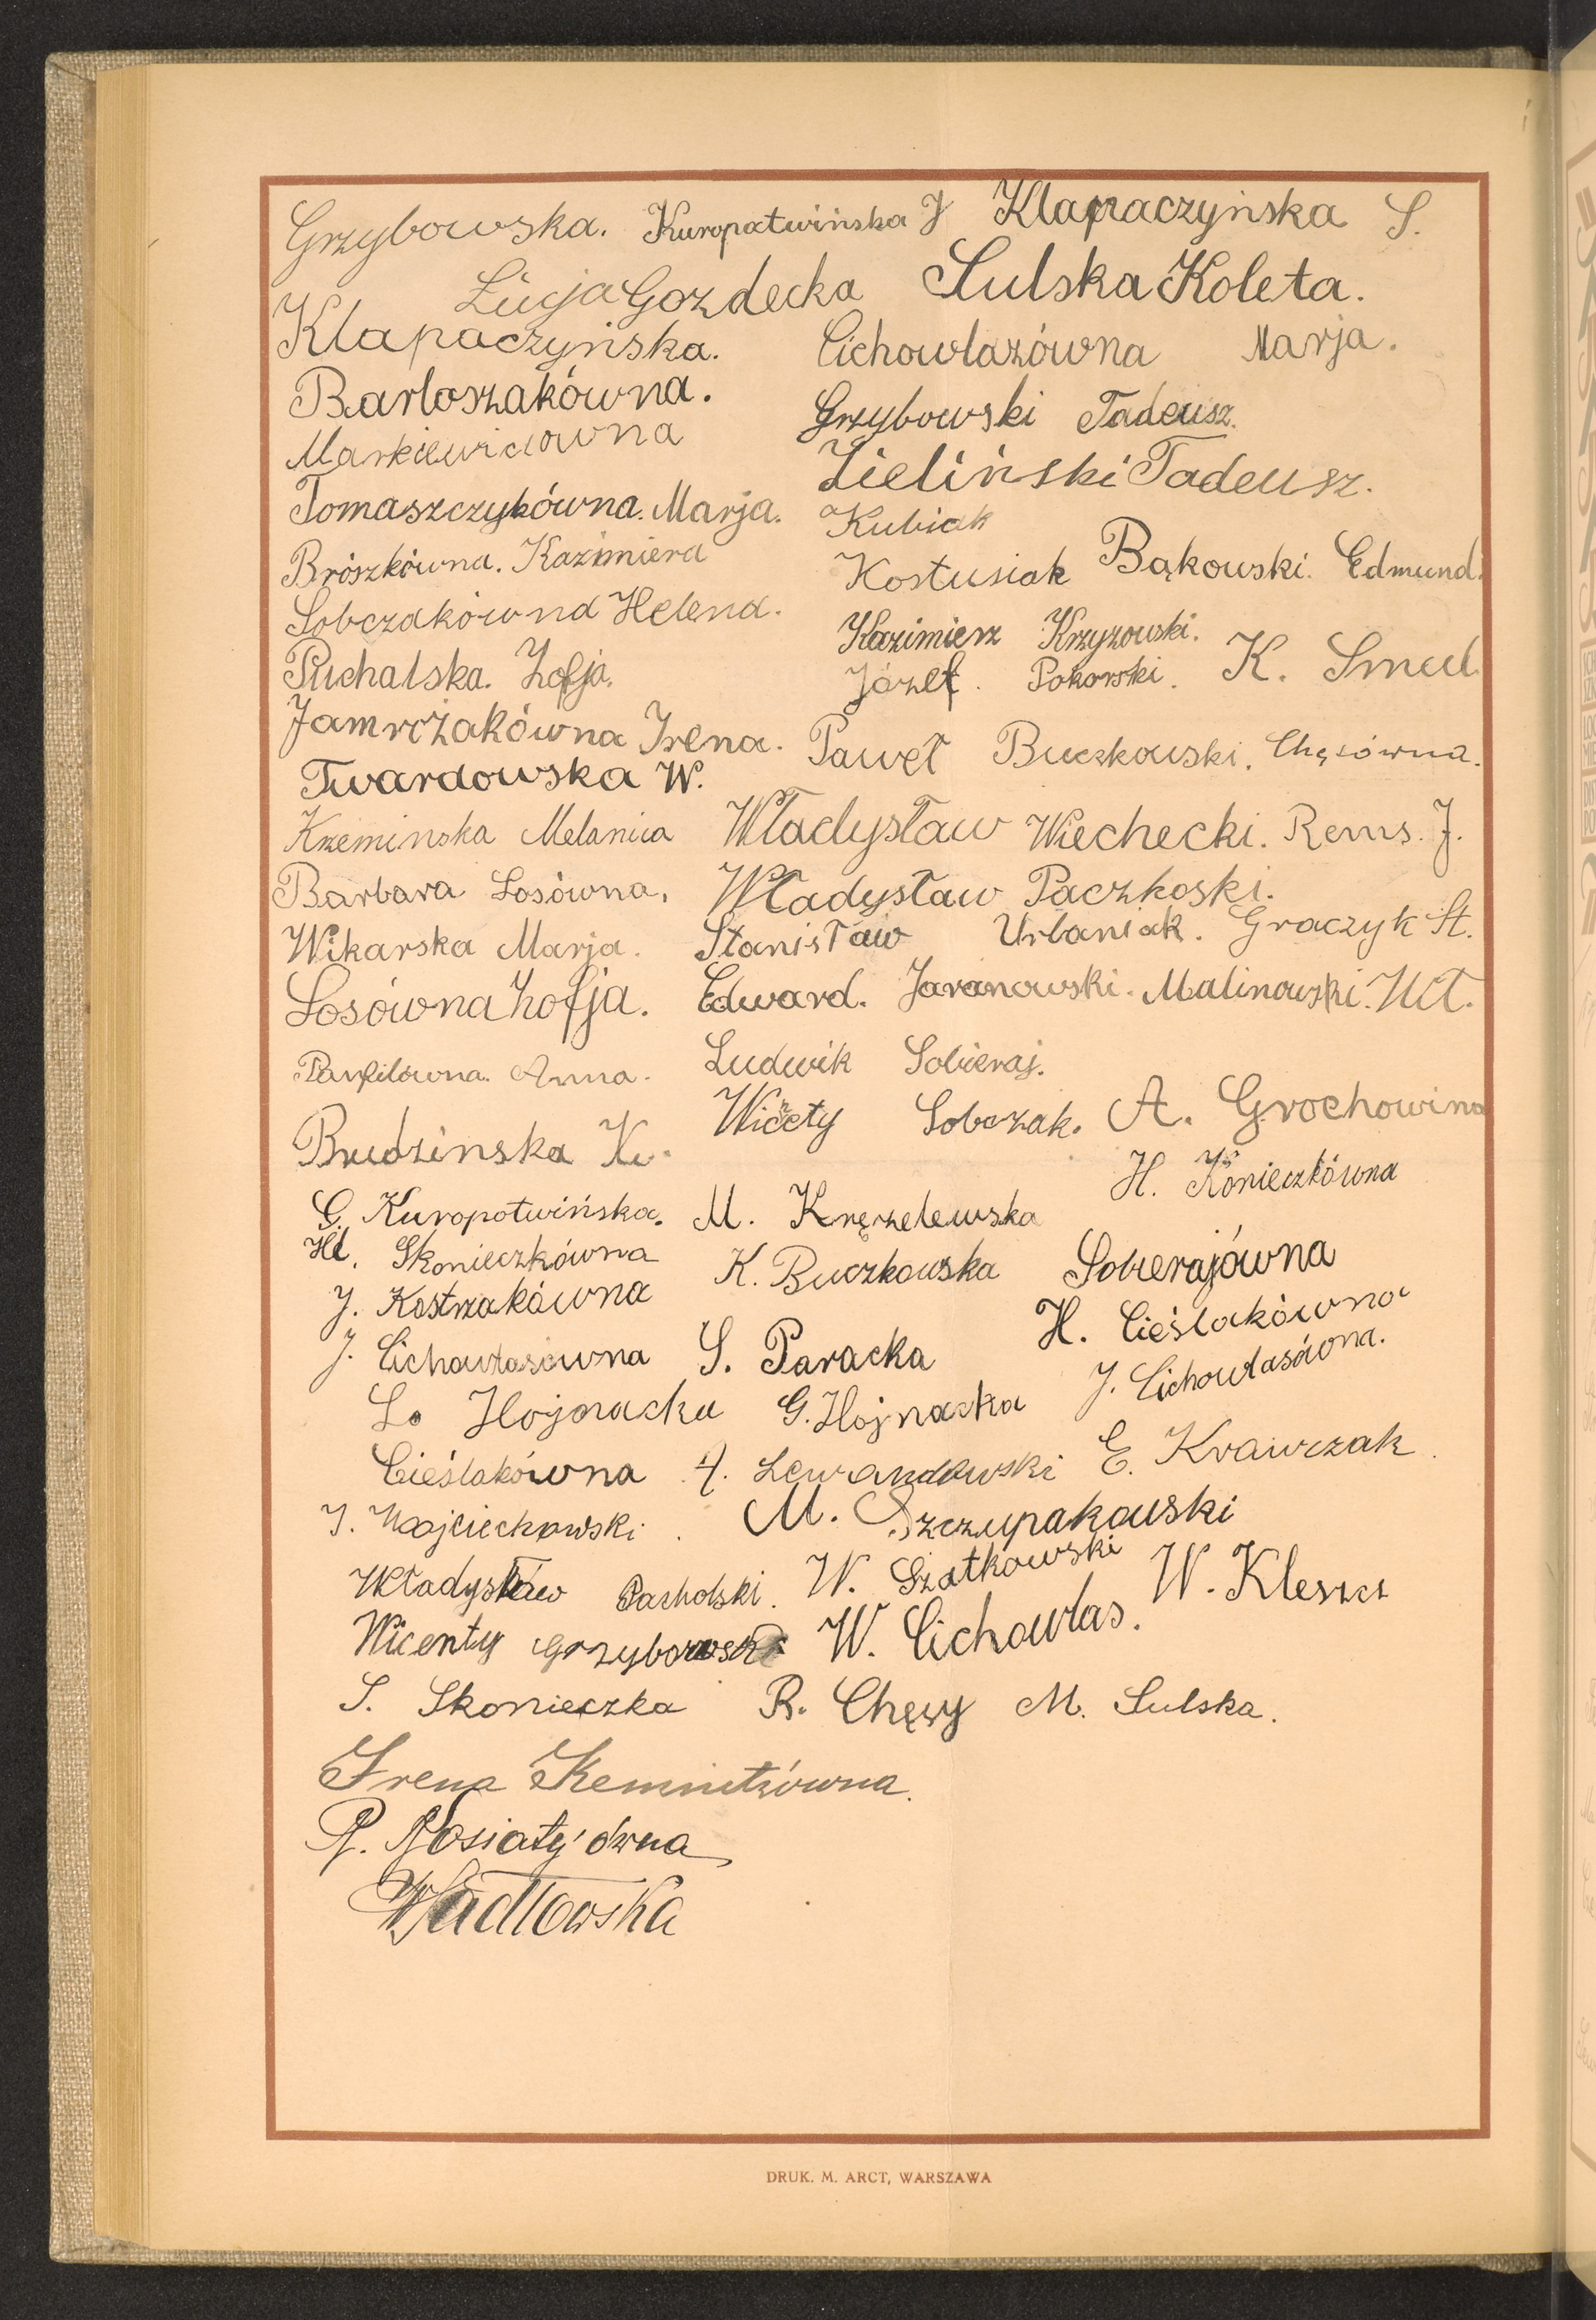 Grzybowska. Kuropatwińska J Klapaczyńska S.
Łucja Gozdecka Sulska Koleta.
Klapaczyńska. Cichowlazówna Marja.
Bartoszakówna. Grzybowski Tadeusz.
Markiewiczowna Zieliński Tadeusz.
Tomaszczykówna. Marja. Kubiak
Brószkówna. Kazimiera Kostusiak Bąkowski. Edmund.
Sobczakówna Helena. Kazimierz Krzyzowski.
Puchalska. Zofja. Józef. Pokorski. K. Smul
Jamrożakówna Irena. Paweł Buczkowski. Chęsówna.
Twardowska W.
Krzeminska Melania Władysław Wiechecki. Rems. J.
Barbara Losówna. Władysław Paczkoski.
Wikarska Marja. Stanisław Urbaniak. Graczyk St.
Losówna Zofja. Edward. Jaranowski. Malinowski. Wł.
Panfilówna. Anna. Ludwik Sobieraj.
Wicęty Sobczak. A. Grochowina
Budzinska K.
H. Konieczkówna
G. Kuropotwińska. M. Kręzelewska
Hl. Skonieczkówna K. Buczkowska Sobierajówna
J. Kostrzakówna H. Cieślakówna
J. Cichowlasówna S. Paracka J. Cichowlasówna.
L. Hojnacka G. Hojnacka
Cieślakówna A. Lewandowski E. Krawczak
J. Wojciechowski. M. Szczupakowski
Władysław Pacholski. W. Szatkowski W. Kleszcz
Wicenty Grzybowski W. Cichowlas.
S. Skonieczka R. Chęsy M. Sulska.
Irena Kemnitzówna.
Wadłowska
DRUK. M. ARCT, WARSZAWA